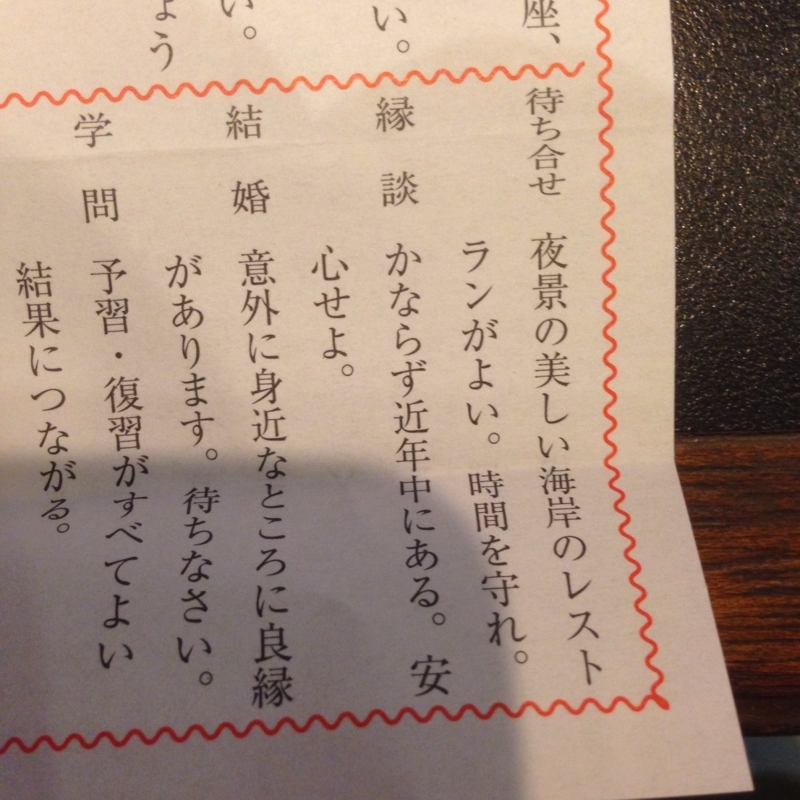 座、
い。
い。
ょう
待ち合せ 夜景の美しい海岸のレスト
ランがよい。時間を守れ。
縁談 かならず近年中にある。安
心せよ。
結婚 意外に身近なところに良縁
があります。待ちなさい。
学問 予習・復習がすべてよい
結果につながる。